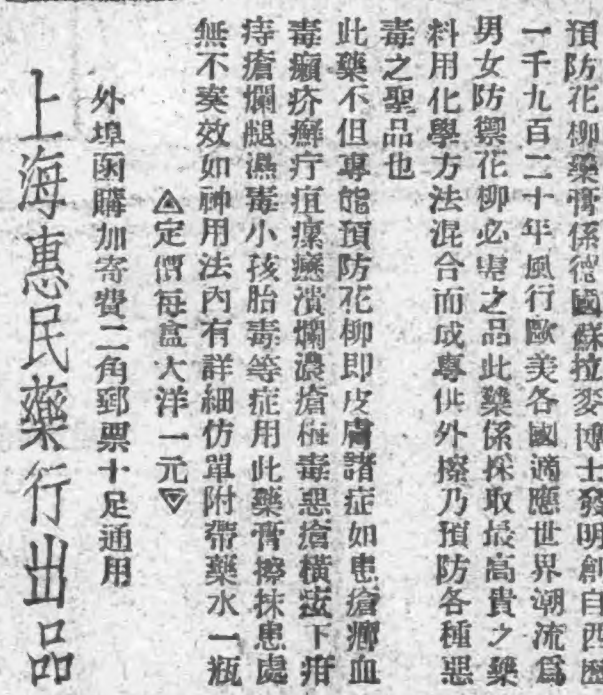 預防花柳藥膏係德國蘇拉麥博士發明創自西歷
一千九百二十年風行歐美各國適應世界潮流爲
男女防禦花柳必需之品此藥係採取最高貴之藥
料用化學方法混合而成專供外擦乃預防各種惡
毒之聖品也
此藥不但專能預防花柳即皮膚諸症如患瘡癤血
毒癩疥癬疔疽瘰癧潰爛濃瘡梅毒惡瘡橫痃下疳
痔瘡爛腿濕毒小孩胎毒等症用此藥膏擦抹患處
無不奏效如神用法內有詳細仿單附帶藥水一瓶
△定價每盒大洋一元▽
外埠函購加寄費二角郵票十足通用
上海惠民藥行出品